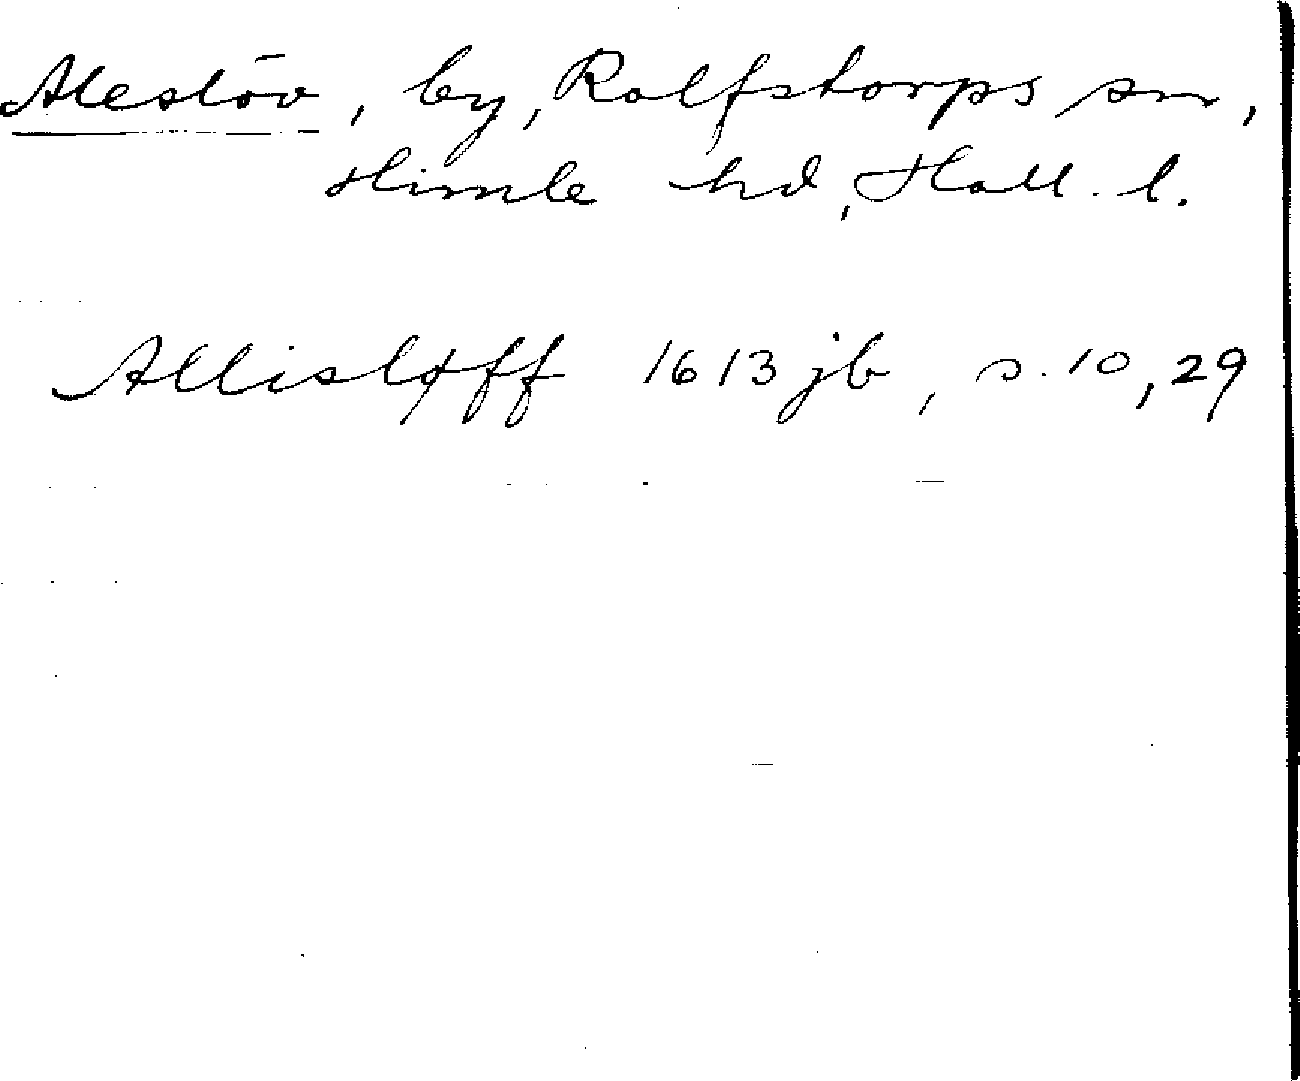 Aleslöv, by, Rolfstorps sn,
Himle hd, Hall. l.
Allisløff 1613 jb, s. 10, 29